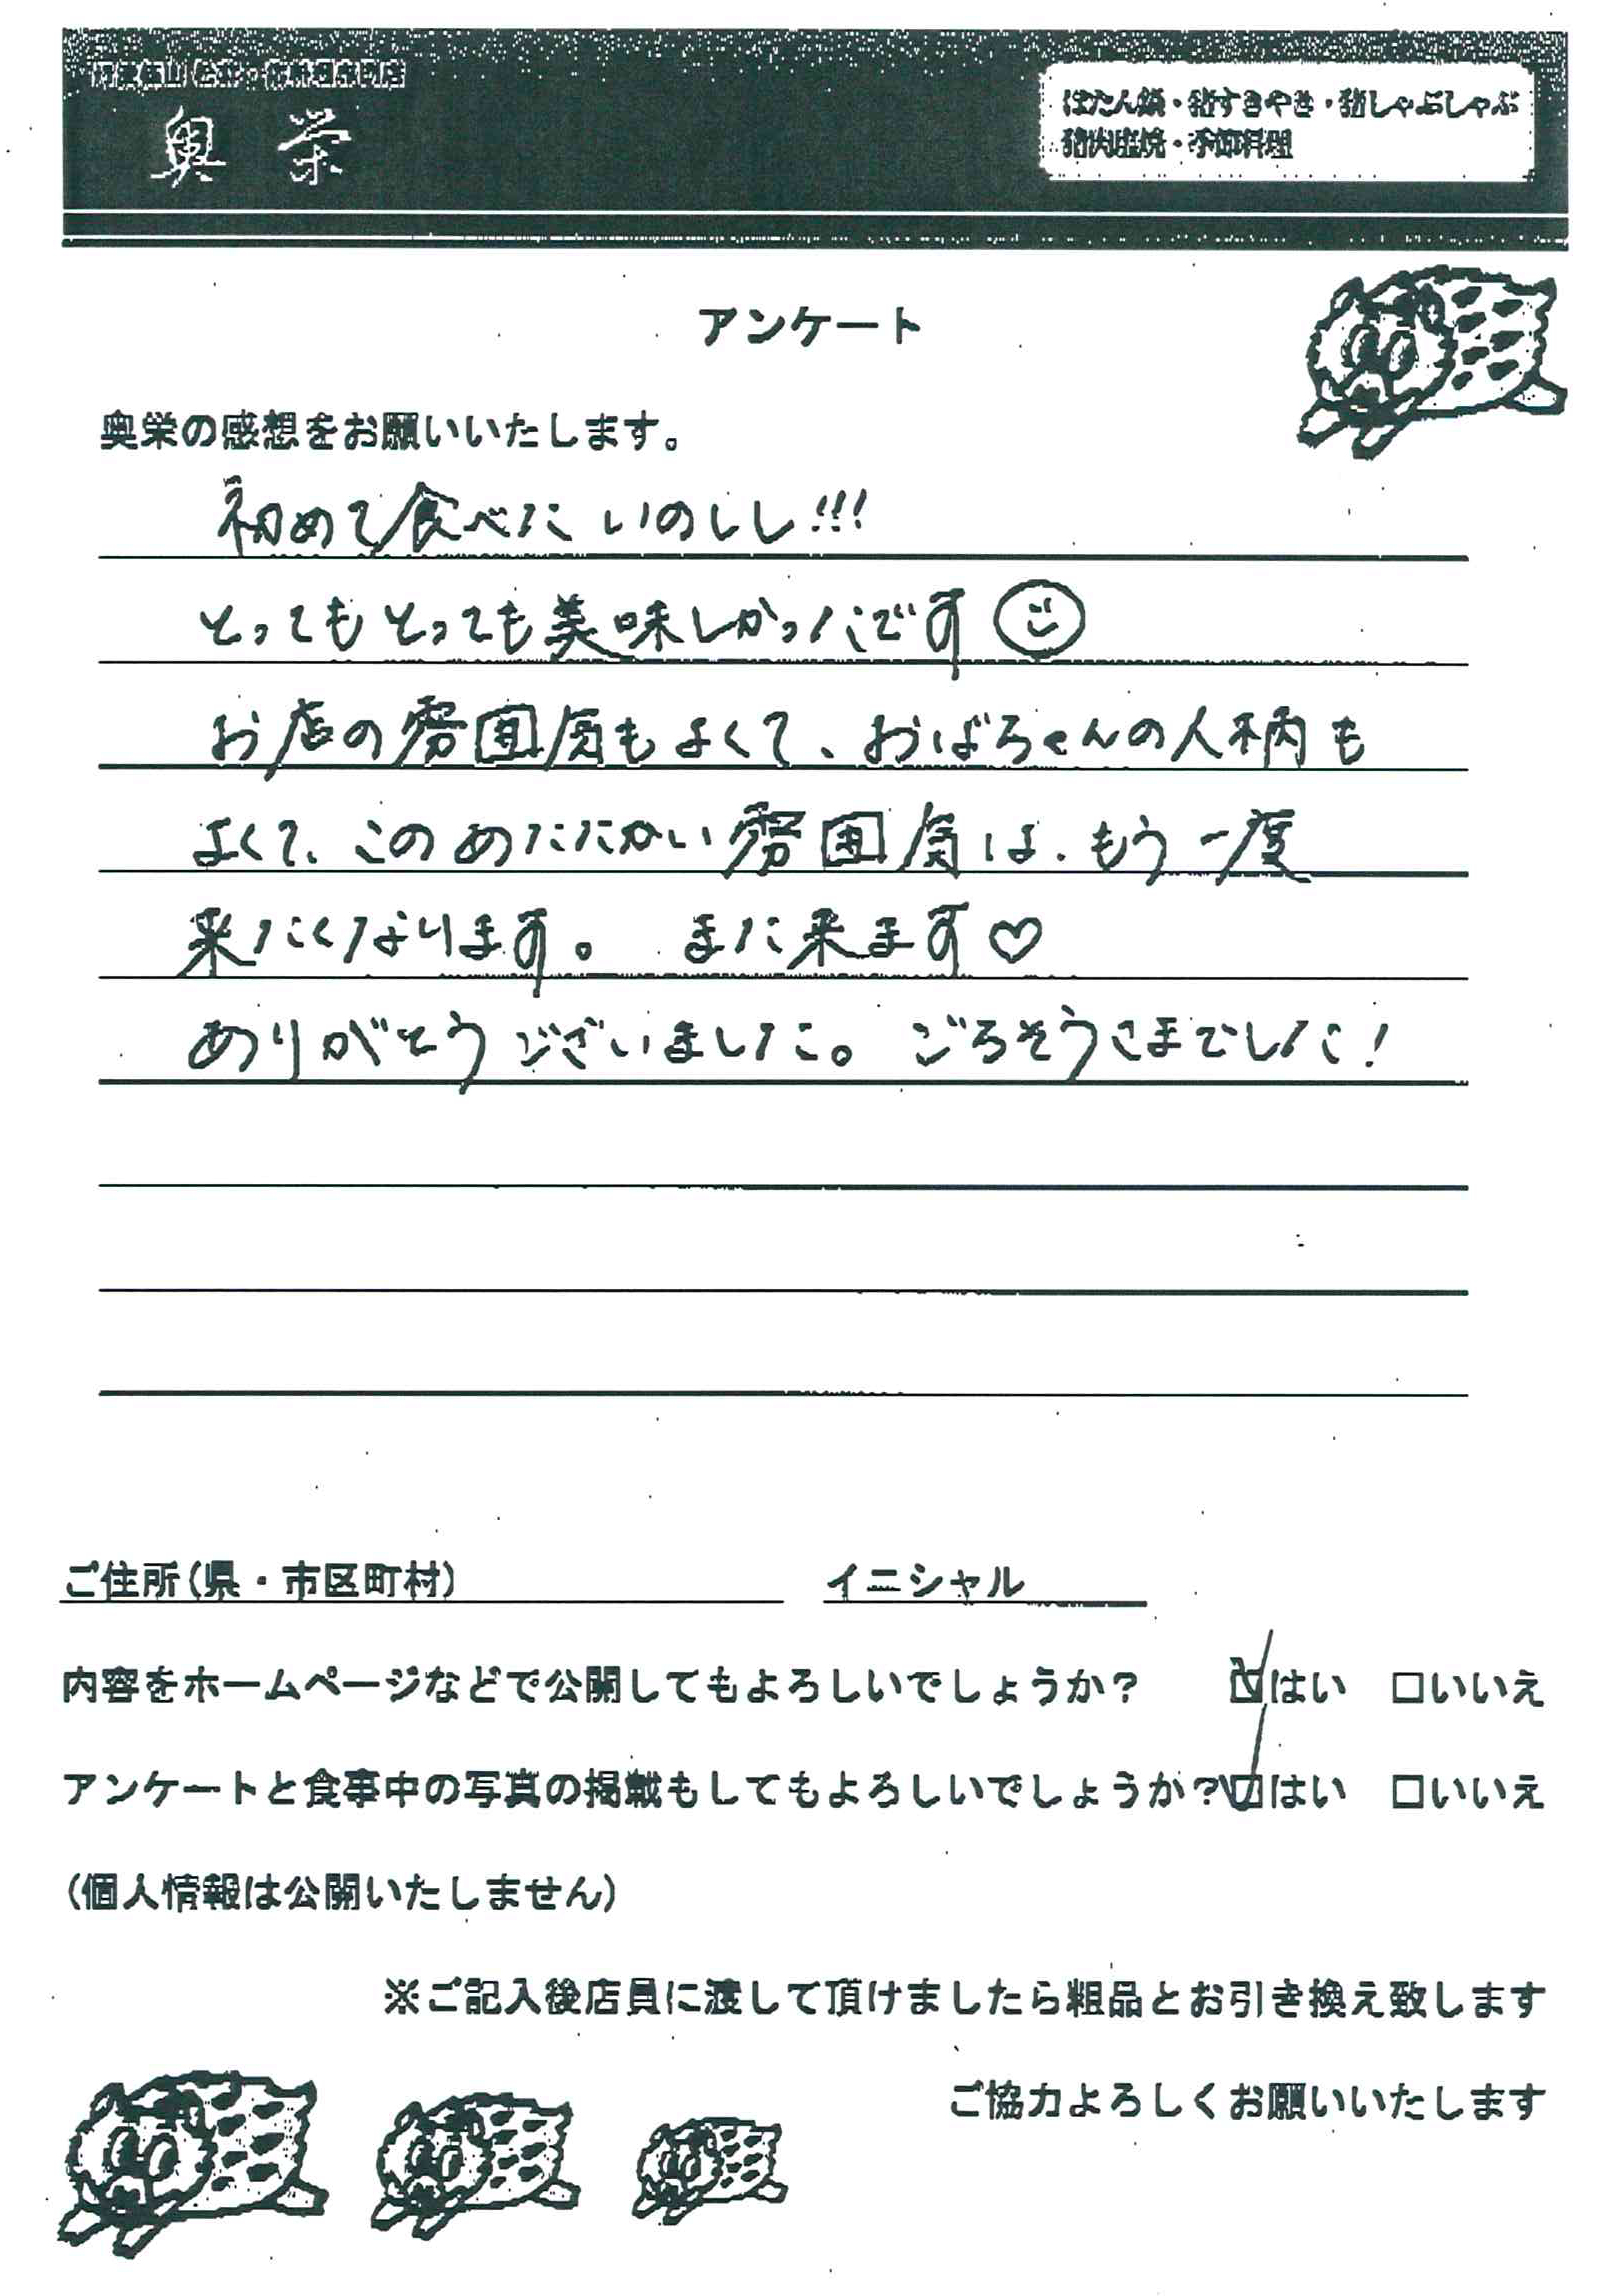 奥栄
ぼたん鍋・猪すきやき・猪しゃぶしゃぶ
猪肉塩焼・季節料理
アンケート
奥栄の感想をお願いいたします。
初めて食べた いのしし!!!
とってもとっても美味しかったです
お店の雰囲気もよくて、おばちゃんの人柄も
よくて、このあたたかい雰囲気は、もう一度
来たくなります。 また来ます♡
ありがとうございました。 ごちそうさまでした!
ご住所(県・市区町村) イニシャル
内容をホームページなどで公開してもよろしいでしょうか? ☑はい □いいえ
アンケートと食事中の写真の掲載もしてもよろしいでしょうか?☑はい □いいえ
(個人情報は公開いたしません)
※ご記入後店員に渡して頂けましたら粗品とお引き換え致します
ご協力よろしくお願いいたします